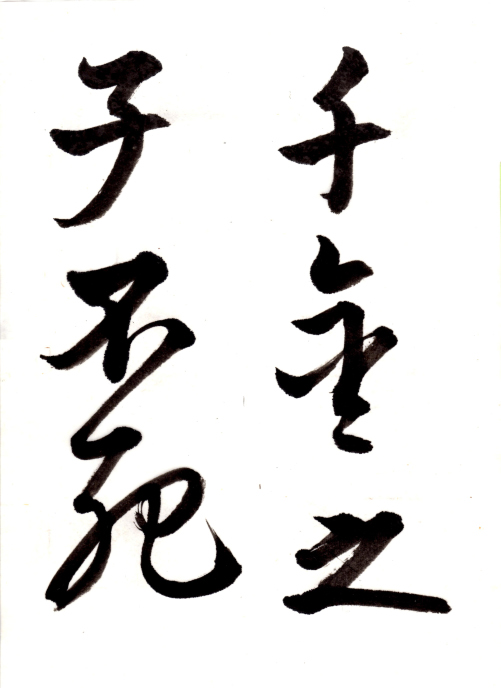 千金之
子不死